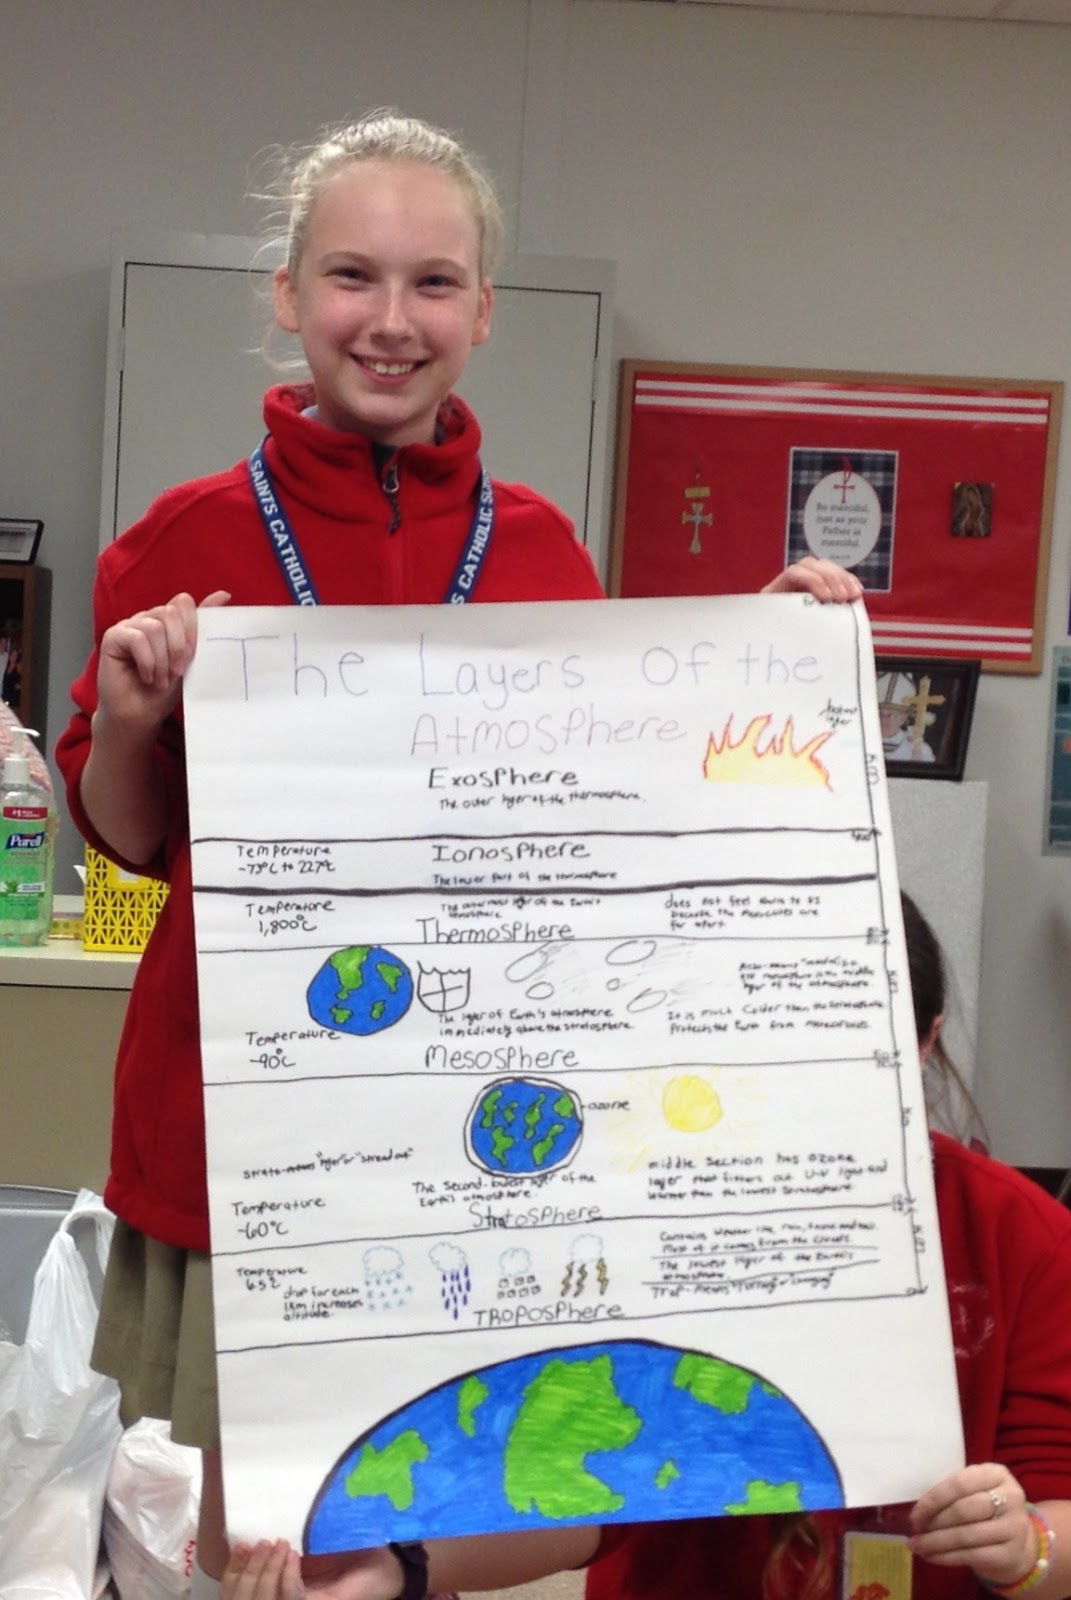 SAINTS CATHOLIC
S CATHOLIC SCH
Be merciful,
just as your
Father is
merciful.
Purell
The Layers Of the
Atmosphere
hottest
layer
Exosphere
The outer layer of the thermosphere.
Temperature
-73°C to 227°C
Ionosphere
The lower part of the thermosphere
Temperature
1,800°C
The outermost layer of the Earth's
atmosphere
does not feel warm to us
because the molecules are
far apart.
Thermosphere
The layer of Earth's atmosphere
immediately above the stratosphere
layer of the atmosphere.
It is much colder than the stratosphere
Protects the Earth from meteoroids.
Temperature
-90°C
Mesosphere
ozone
strato-means "layer" or "spread out"
The second-lowest layer of the
Earth's atmosphere.
middle section has ozone
layer that filters out U-V light and
warmer than the lowest stratosphere
Temperature
-60°C
Stratosphere
Temperature
6.5°C
drop for each
1 km increases
altitude.
Contains weather like rain, snow and
Most of it comes from the clouds.
The lowest layer of the Earth's
atmosphere
Trop-means "turning" or "changing"
Troposphere